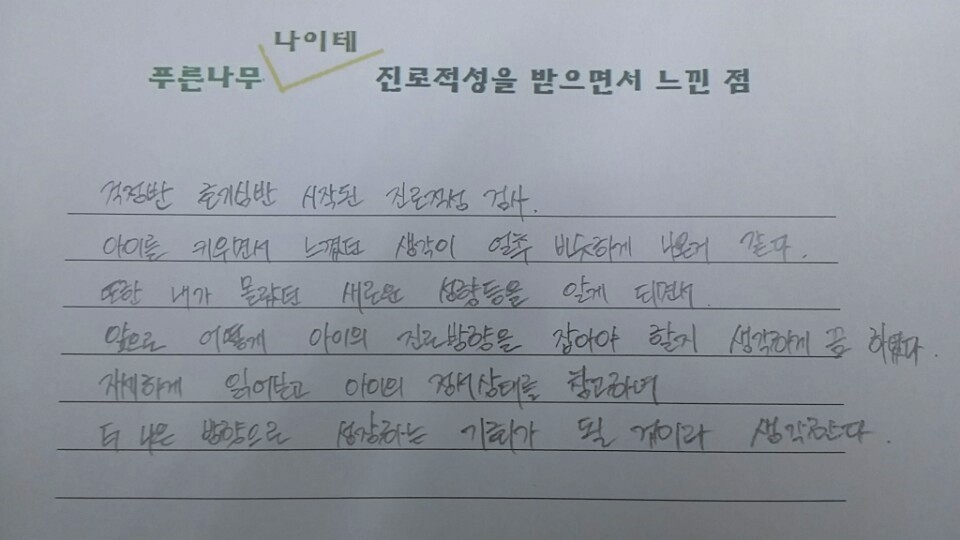 나이테
푸른나무 진로적성을 받으면서 느낀 점
걱정반 호기심반 시작된 진로적성 검사.
아이를 키우면서 느꼈던 생각이 얼추 비슷하게 나온거 같다.
또한 내가 몰랐던 새로운 성향등을 알게 되면서.
앞으로 어떻게 아이의 진로방향을 잡아야 할지 생각하게끔 하였다.
자세하게 읽어보고 아이의 정서상태를 참고하여
더 나은 방향으로 성장하는 기회가 될 것이라 생각한다.